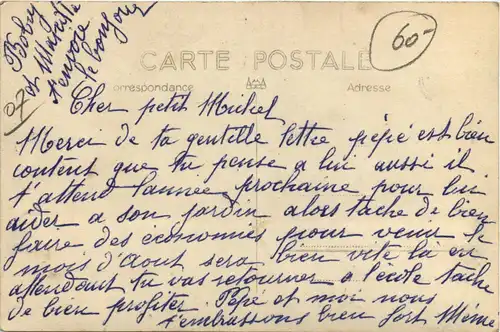 Boby
et Maziste
t'envoie
le bonjour
60-
07
CARTE POSTALE
Correspondance
Adresse
Cher petit Michel
Merci de ta gentille lettre pépé est bien
content que tu pense a lui aussi il
t'attend l'année prochaine pour lui
aider a son jardin alors tache de bien
faire des économies pour venir le
mois d'Aout sera bien vite là en
attendant tu vas retourner a l'école tache
de bien profiter. Pépé et moi nous
t'embrassons bien fort Mémé